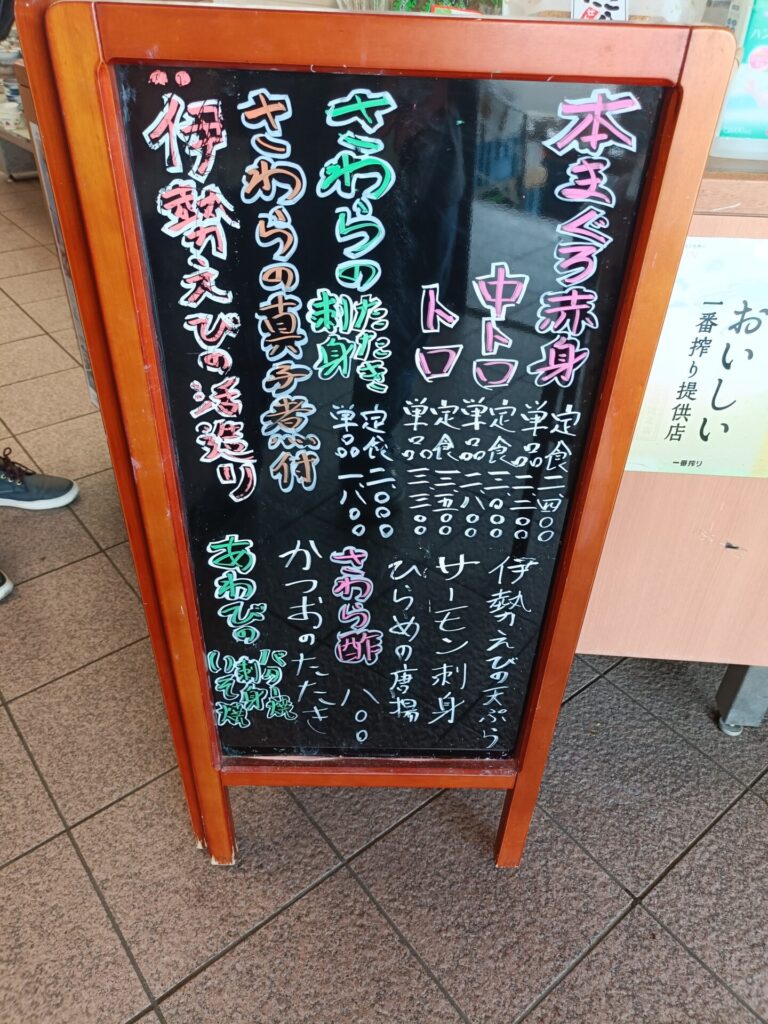 本まぐろ赤身
定食 二、四〇〇
単品 二、二〇〇
中トロ
定食 三、〇〇〇
単品 二、八〇〇
トロ
定食 三、五〇〇
単品 三、三〇〇
さわらの
たたき
刺身
定食 二、〇〇〇
単品 一、八〇〇
さわらの真子煮付
伊勢えびの活造り
伊勢えびの天ぷら
サーモン刺身
ひらめの唐揚
さわら酢 八〇〇
かつおのたたき
あわびの
バター焼
刺身
いそ焼
おいしい
一番搾り提供店
一番搾り